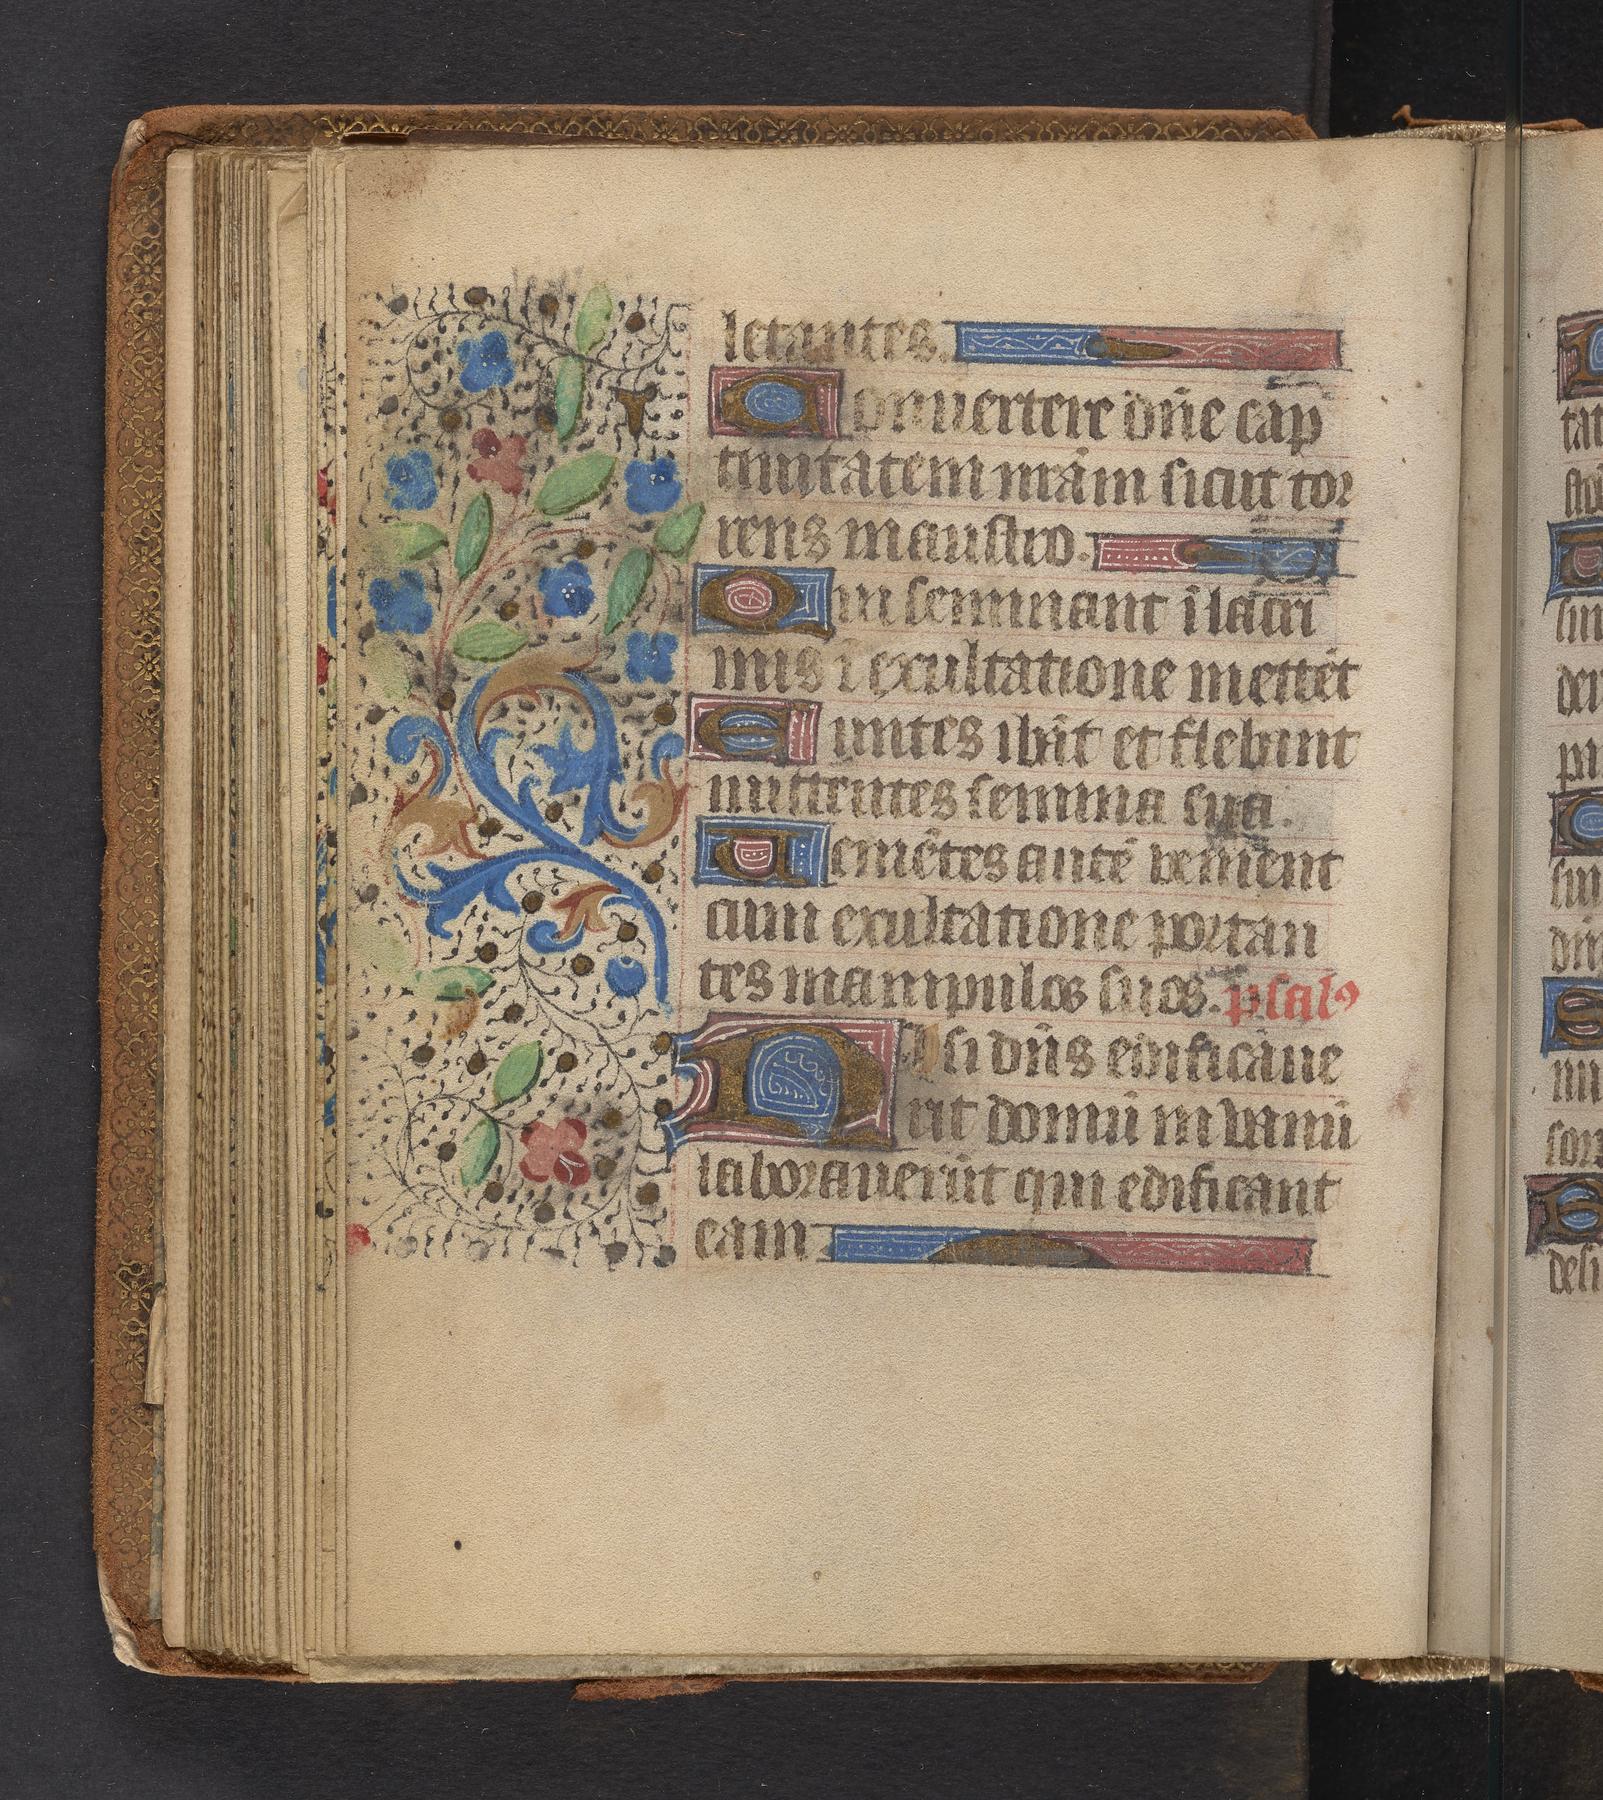 letantes.
Conuertere dn̄e cap
tiuitatem nrām sicut tor
rens in austro.
Qui seminant ī lacri
mis ī exultatione mettēt
Euntes ibāt et flebant
mittentes semina sua.
Uenietēs autē venient
cum exultatione portan
tes manipulos suos. psalꝰ
Nisi dn̄s edificaue
rit domū in vanū
laborauerūt qui edificant
eam